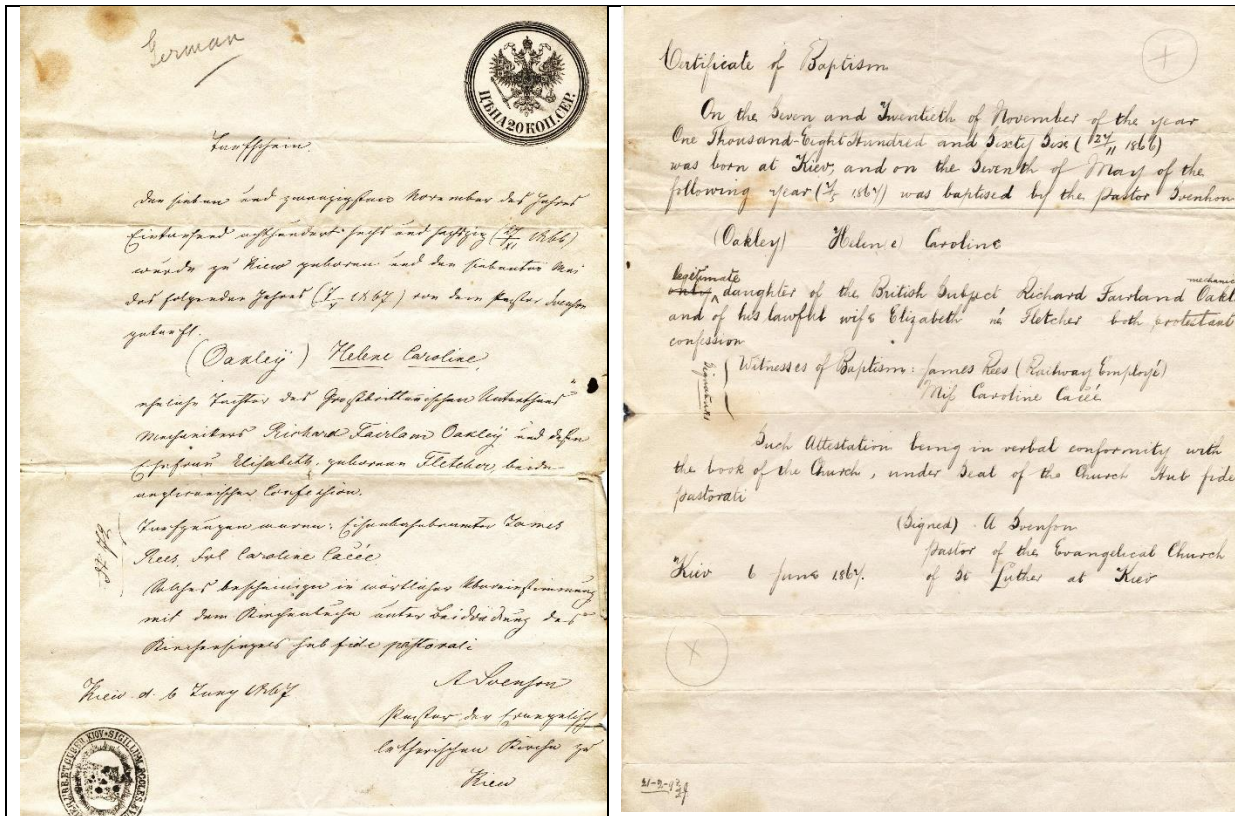 German
ЦѢНА 20 КОП. СЕР.
Taufschein.
Den sieben und zwanzigsten November des Jahres
Eintausend achthundert sechs und sechszig (27/XI 1866)
wurde zu Kiew geboren und den siebenten Mai
des folgenden Jahres (7/V 1867) von dem Pastor Svenson
getauft.
(Oakley) Helene Caroline,
eheliche Tochter des Großbrittannischen Unterthans
Mechanikers Richard Fairlam Oakley und dessen
Ehefrau Elisabeth, geborenen Fletcher, beide
Confession.
Taufzeugen waren: Eisenbahnbeamter James
Rees, Frl Caroline Cacée
Solches bescheinige in wörtlicher Übereinstimmung
mit dem Kirchenbuche unter Beidrückung des
Kirchensiegels sub fide pastorali
Kiew d. 6 Juny 1867
A Svenson
Pastor der Evangelisch
lutherischen Kirche zu
Kiew
SIGILLUM
Certificate of Baptism
On the Seven and Twentieth of November of the year
One Thousand-Eight Hundred and Sixty Six (27/11 1866)
was born at Kiev, and on the Seventh of May of the
following year (7/5 1867) was baptised by the pastor Svenhon
(Oakley) Helen(e) Caroline
legitimate mechanic
only daughter of the British Subject Richard Fairland Oakl
and of his lawful wife Elizabeth né Fletcher both protestant
confession
Signatures
Witnesses of Baptism: James Rees (Railway Employé)
Miss Caroline Cacée
Such Attestation being in verbal conformity with
the book of the Church, under Seal of the Church Hub fide
pastorati
(Signed) - A Svenson
pastor of the Evangelical Church
Kiev 6 June 1867. of St Luther at Kiev